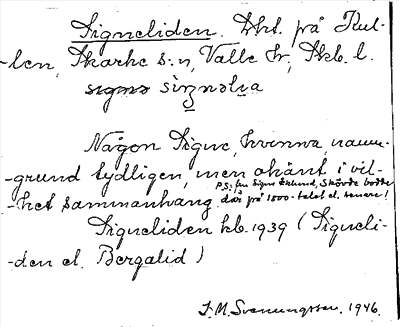 Signeliden. Trkt. på Kul-
-len, Skarke s:n, Valle hr, Skb. l.
signə sìŋnəlia
Någon Signe, kvinna, namn-
-grund tydligen, men okänt i vil-
P.S: fru Signe Eklund, Skövde bodde
-ket sammanhang. där på 1800-talet el. senare!
Signeliden kb. 1939 (Signeli-
-den el. Bergalid)
J. M. Svennungsson. 1946.